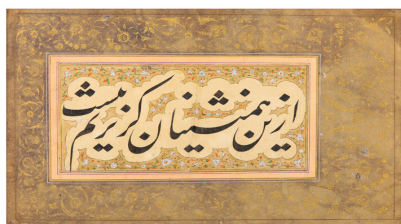 ازین همنشینان کزیرم نیست